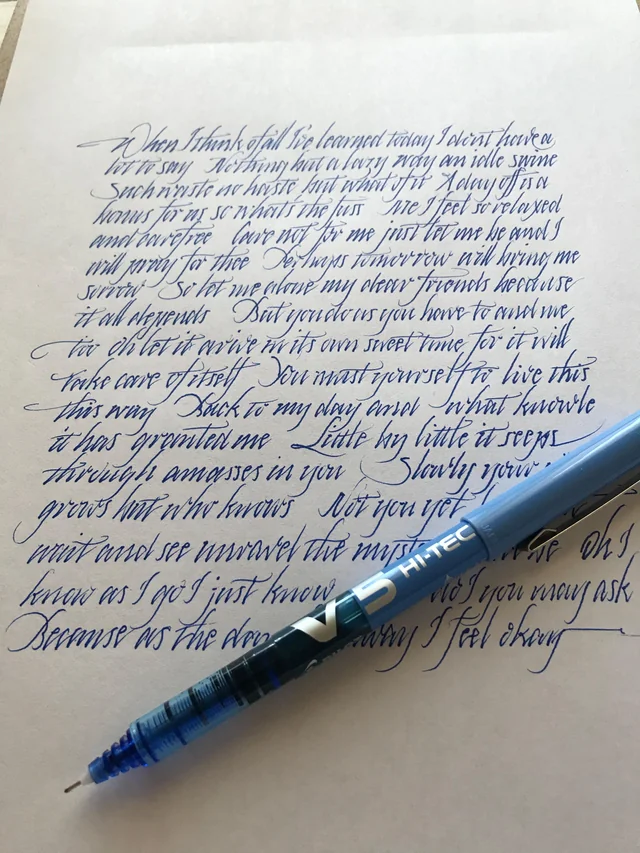 When I think of all I've learned today I don't have a
lot to say Nothing but a lazy way an idle swine
Such waste no haste but what of it A day off is a
bonus for us so what's the fuss Me I feel so relaxed
and carefree Care not for me just let me be and I
will pray for thee Perhaps tomorrow will bring me
sorrow So let me alone my dear friends because
it all depends But you do us you have to and me
too Oh let it arive in its own sweet time for it will
take care of itself You must yourself to live this
this way Back to my day and what knowle
it has granted me Little by little it seeps
through amasses in you Slowly your
grows but who knows Not you yet
wait and see unravel the Oh I
know as I go I just know do I you may ask
Because as the day away I feel okay
V5 HI-TEC